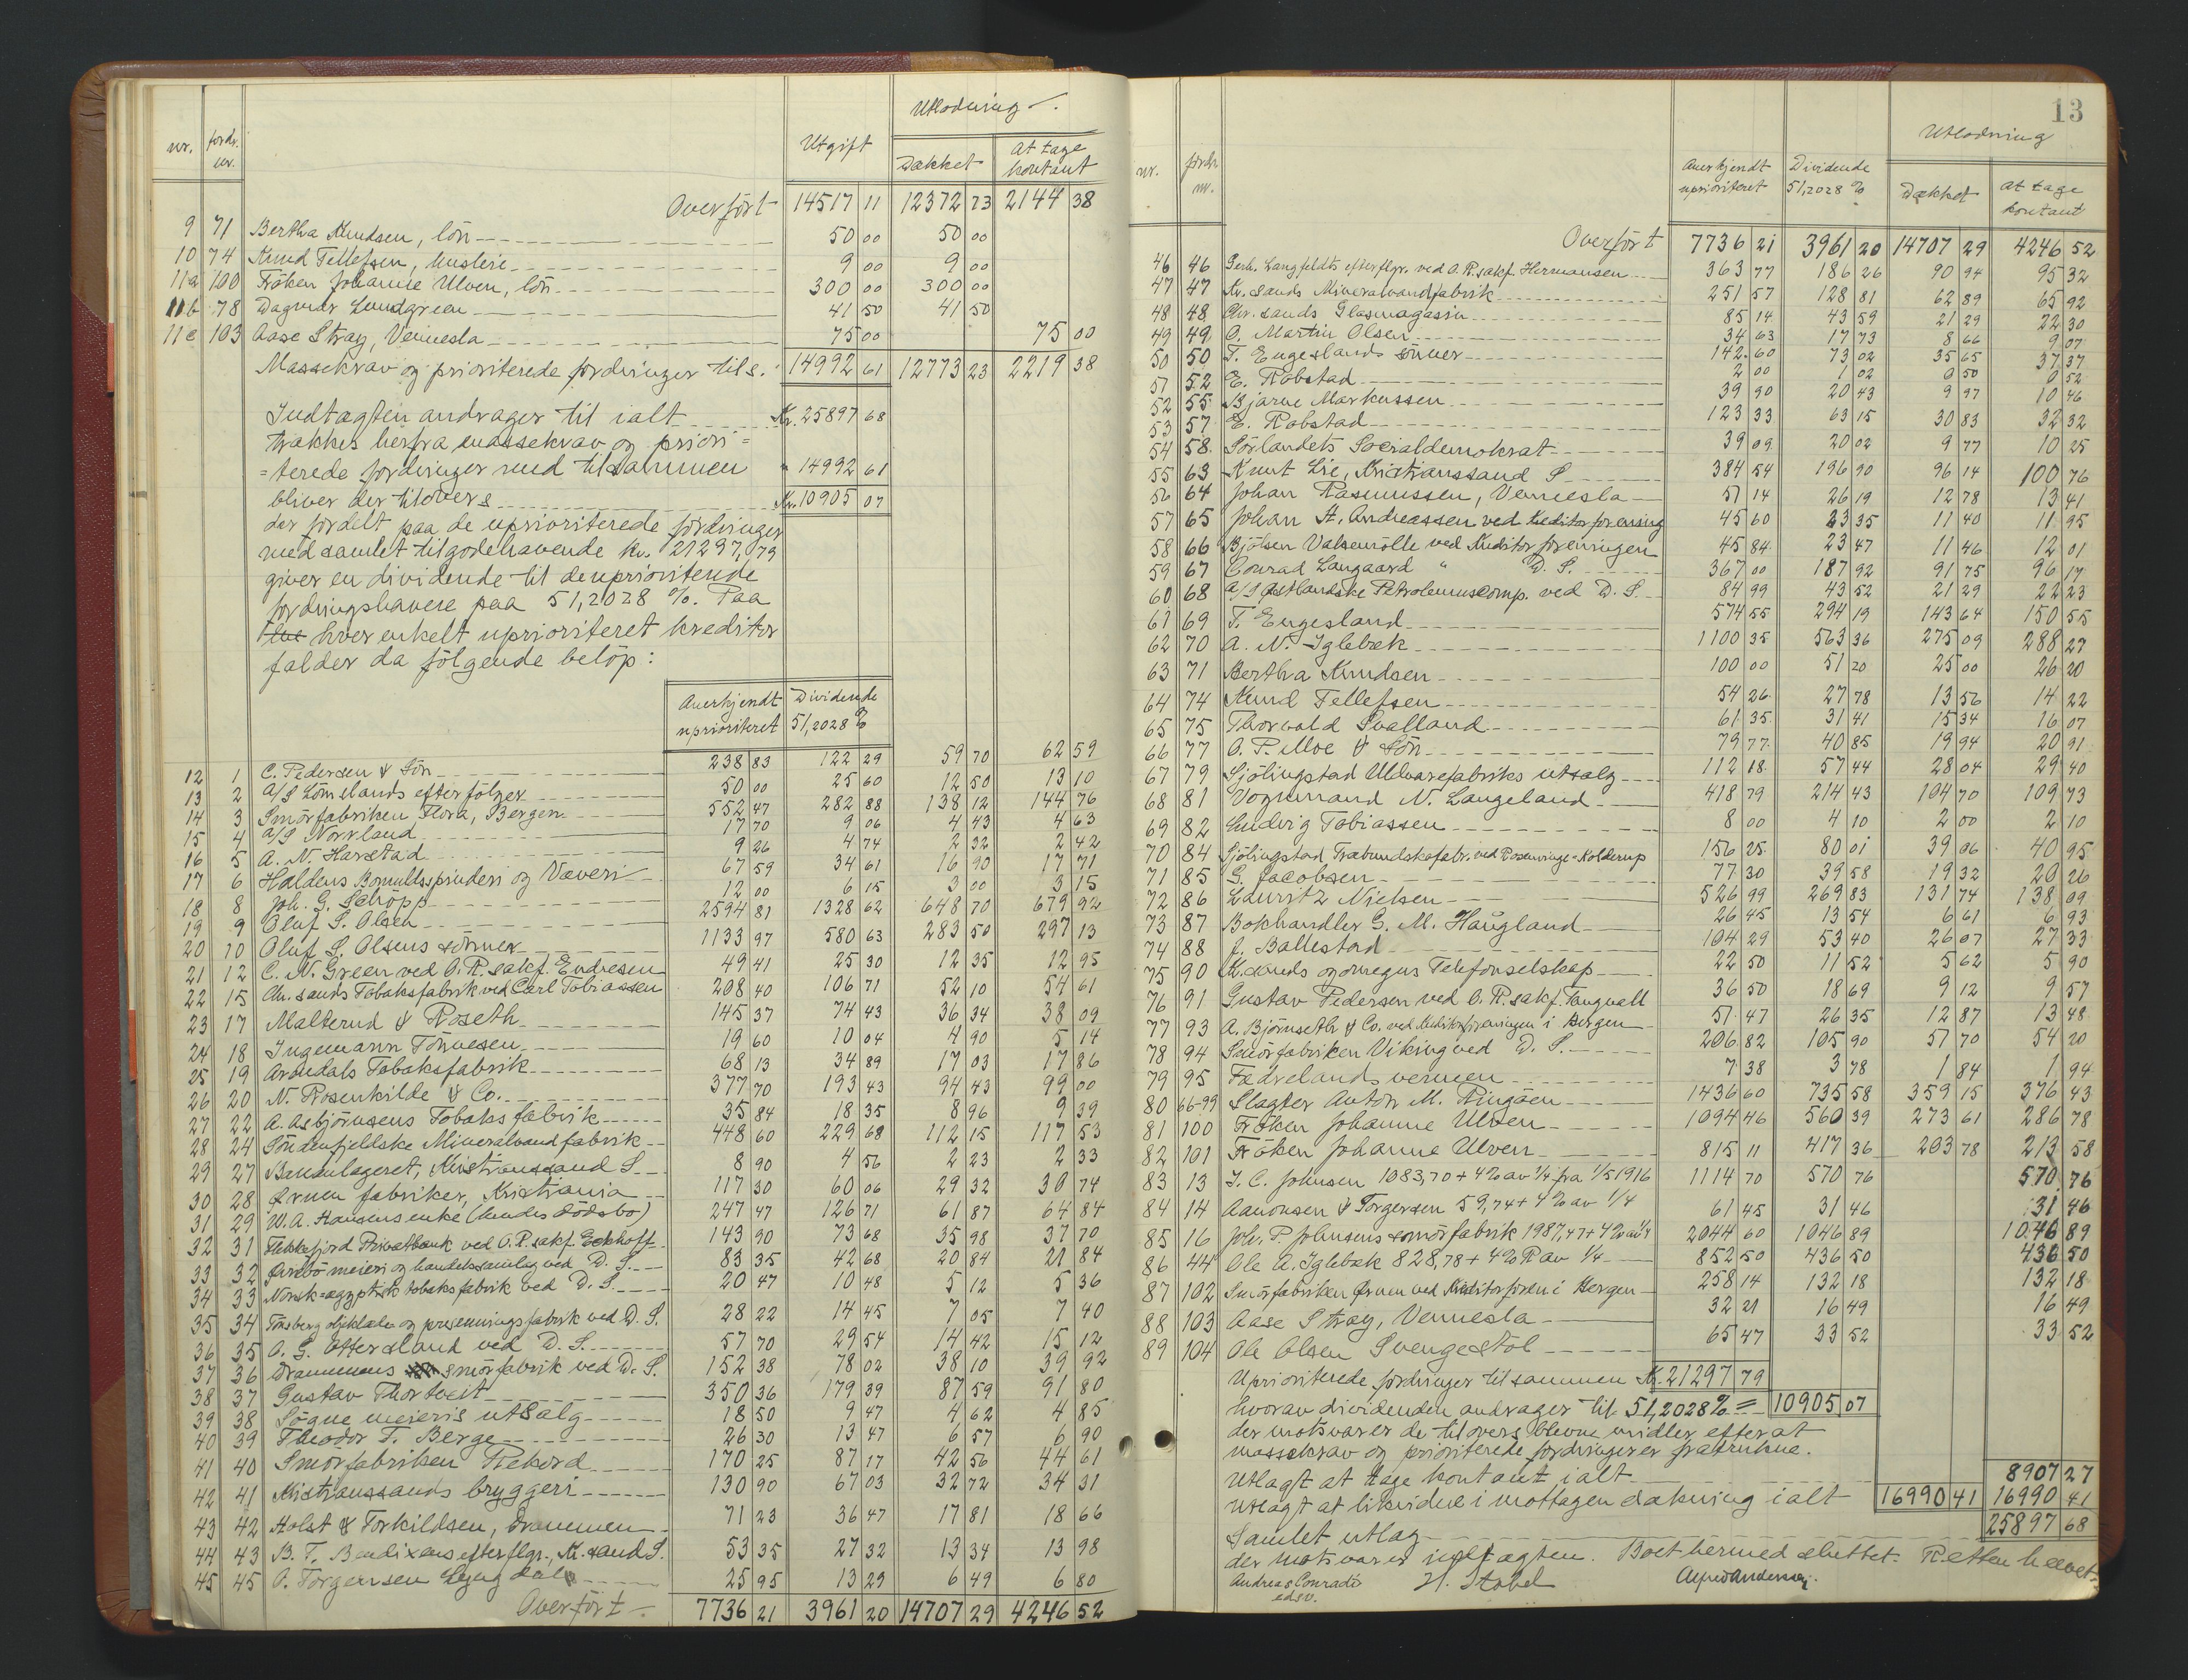 Utlodning.
nr. fordr. nr. Utgift Dækket At tage kontant
Overført 14517 11 12372 73 2144 38
9 71 Bertha Knudsen, lön 50 00 50 00
10 74 Knud Tellefsen, husleie 9 00 9 00
11a 100 Fröken Johanne Ulven, lön 300 00 300 00
11b 78 Dagmar Lundgreen 41 50 41 50
11c 103 Aase Stray, Vennesla 75 00 75 00
Massekrav og prioriterede fordringer tils. 14992 61 12773 23 2219 38
Indtægten andrager til ialt Kr. 25897 68
trækkes herfra massekrav og priori=
=terede fordringer med tilsammen " 14992 61
bliver der tilovers Kr. 10905 07
der fordelt paa de uprioriterede fordringer
med samlet tilgodehavende kr. 21297,79
giver en dividende til de uprioriterede
fordringshavere paa 51,2028 %. Paa
hver enkelt uprioriteret kreditor
falder da følgende beløp:
Anerkjendt uprioriteret Dividende 51,2028 %
12 1 C. Pedersen & Sön 238 83 122 29 59 70 62 59
13 2 A/S Lömslands efterfölger 50 00 25 60 12 50 13 10
14 3 Smörfabriken Flora, Bergen 552 47 282 88 138 12 144 76
15 4 A/S Norrland 17 70 9 06 4 43 4 63
16 5 A. N. Harstad 9 26 4 74 2 32 2 42
17 6 Haldens Bomuldsspinderi og Væveri 67 59 34 61 16 90 17 71
18 8 Joh. G. Schöpp 12 00 6 15 3 00 3 15
19 9 Oluf S. Olsen 2594 81 1328 62 648 70 679 92
20 10 Oluf S. Olsens sönner 1133 97 580 63 283 50 297 13
21 12 C. N. Green ved O. R. sakf. Endresen 49 41 25 30 12 35 12 95
22 15 Chr. sands Tobaksfabrik ved Carl Tobiassen 208 40 106 71 52 10 54 61
23 17 Malterud & Roseth 145 37 74 43 36 34 38 09
24 18 Ingemann Tönnesen 19 60 10 04 4 90 5 14
25 19 Arendals Tobaksfabrik 68 13 34 89 17 03 17 86
26 20 N. Rosenkilde & Co. 377 70 193 43 94 43 99 00
27 22 A. Asbjörnsens Tobaksfabrik 35 84 18 35 8 96 9 39
28 24 Söndenfjeldske Mineralvandfabrik 448 60 229 68 112 15 117 53
29 27 Bananlageret, Kristianssand S 8 90 4 56 2 23 2 33
30 28 Ørnen fabriker, Kristiania 117 30 60 06 29 32 30 74
31 29 W. A. Hansens enke (hendes dödsbo) 247 47 126 71 61 87 64 84
32 31 Flekkefjord Privatbank ved O. R. sakf. Eckhoff 143 90 73 68 35 98 37 70
33 32 Øvrebö meieri og handelssamlag ved D. S. 83 35 42 68 20 84 21 84
34 33 Norsk=ægyptisk tobaksfabrik ved D. S. 20 47 10 48 5 12 5 36
35 34 Tönsberg oljeklæde og presenningsfabrik ved D. S. 28 22 14 45 7 05 7 40
36 35 O. G. Ottersland ved D. S. 57 70 29 54 14 42 15 12
37 36 Drammens smörfabrik ved D. S. 152 38 78 02 38 10 39 92
38 37 Gustav Thortveit 350 36 179 39 87 59 91 80
39 38 Søgne meieris utsalg 18 50 9 47 4 62 4 85
40 39 Theodor T. Berge 26 30 13 47 6 57 6 90
41 40 Smörfabriken Rekord 170 25 87 17 42 56 44 61
42 41 Kristianssands bryggeri 130 90 67 03 32 72 34 31
43 42 Holst & Torkildsen, Drammen 71 23 36 47 17 81 18 66
44 43 B. T. Bendixens efterflgr., Kr. sand S. 53 35 27 32 13 34 13 98
45 45 O. Torgersen Lyngdal 25 95 13 29 6 49 6 80
Overført 7736 21 3961 20 14707 29 4246 52
13
Utlodning
nr. fordr. nr. Anerkjendt uprioriteret Dividende 51,2028 % Dækket At tage kontant
Overført 7736 21 3961 20 14707 29 4246 52
46 46 Gerh. Langfeldts efterflgr. ved O. R. sakf. Hermansen 363 77 186 26 90 94 95 32
47 47 Kr. sands Mineralvandfabrik 251 57 128 81 62 89 65 92
48 48 Chr. sands Glasmagasin 85 14 43 59 21 29 22 30
49 49 O. Martin Olsen 34 63 17 73 8 66 9 07
50 50 T. Engeslands sönner 142 60 73 02 35 65 37 37
51 52 E. Robstad 2 00 1 02 0 50 0 52
52 55 Bjarne Markussen 39 90 20 43 9 97 10 46
53 57 E. Robstad 123 33 63 15 30 83 32 32
54 58 Sörlandets Socialdemokrat 39 09 20 02 9 77 10 25
55 63 Knut Lie, Kristianssand S 384 54 196 90 96 14 100 76
56 64 Johan Rasmussen, Vennesla 51 14 26 19 12 78 13 41
57 65 Johan A. Andreassen ved Kreditorforening 45 60 23 35 11 40 11 95
58 66 Bjölsen Valsemölle ved Kreditorforeningen 45 84 23 47 11 46 12 01
59 67 Conrad Langaard " D. S. 367 00 187 92 91 75 96 17
60 68 A/S Østlandske Petroleumscomp. ved D. S. 84 99 43 52 21 29 22 23
61 69 T. Engesland 574 55 294 19 143 64 150 55
62 70 A. N. Iglebæk 1100 35 563 36 275 09 288 27
63 71 Bertha Knudsen 100 00 51 20 25 00 26 20
64 74 Knud Tellefsen 54 26 27 78 13 56 14 22
65 75 Thorvald Svalland 61 35 31 41 15 34 16 07
66 77 O. P. Moe & Sön 79 77 40 85 19 94 20 91
67 79 Sjölingstad Uldvarefabriks utsalg 112 18 57 44 28 04 29 40
68 81 Vognmand N. Langeland 418 79 214 43 104 70 109 73
69 82 Ludvig Tobiassen 8 00 4 10 2 00 2 10
70 84 Sjölingstad Træbundskofabr. ved Rosenvinge-Kolderup 156 25 80 01 39 06 40 95
71 85 G. Jacobsen 77 30 39 58 19 32 20 26
72 86 Lauritz Nielsen 526 99 269 83 131 74 138 09
73 87 Bokhandler G. M. Haugland 26 45 13 54 6 61 6 93
74 88 J. Ballestad 104 29 53 40 26 07 27 33
75 90 Kr. sands og omegns Telefonselskap 22 50 11 52 5 62 5 90
76 91 Gustav Pedersen ved O. R. sakf. Tangvall 36 50 18 69 9 12 9 57
77 93 A. Björnseth & Co. ved Kreditorforeningen i Bergen 51 47 26 35 12 87 13 48
78 94 Smörfabriken Viking ved D. S. 206 82 105 90 57 70 54 20
79 95 Fædrelandsvennen 7 38 3 78 1 84 1 94
80 66-99 Slagter Anton M. Ringåen 1436 60 735 58 359 15 376 43
81 100 Fröken Johanne Ulven 1094 46 560 39 273 61 286 78
82 101 Fröken Johanne Ulven 815 11 417 36 203 78 213 58
83 13 I. C. Johnsen 1083,70 + 4% av ¼ fra 1/5 1916 1114 70 570 76 570 76
84 14 Aanonsen & Torgersen 59,74 + 4% av ¼ 61 45 31 46 31 46
85 16 Joh. P. Johnsens smörfabrik 1987,47 + 4% av ¼ 2044 60 1046 89 1046 89
86 44 Ole A. Iglebæk 828,78 + 4% R av ¼ 852 50 436 50 436 50
87 102 Smörfabriken Ørnen ved Kreditorforen i Bergen 258 14 132 18 132 18
88 103 Aase Stray, Vennesla 32 21 16 49 16 49
89 104 Ole Olsen Svengestöl 65 47 33 52 33 52
Uprioriterede fordringer tilsammen Kr. 21297 79
hvorav dividenden andrager til 51,2028% = 10905 07
der motsvarer de tilovers blevne midler efter at
massekrav og prioriterede fordringer er fratrukne.
Utlagt at tage kontant ialt 8907 27
Utlagt at likvidere i mottagen dækning ialt 16990 41 16990 41
Samlet utlag 25897 68
der motsvarer indtægten. Boet hermed sluttet. Retten hævet.
Andreas Conradi H. Stabel Alfred Andersen.
edsv.